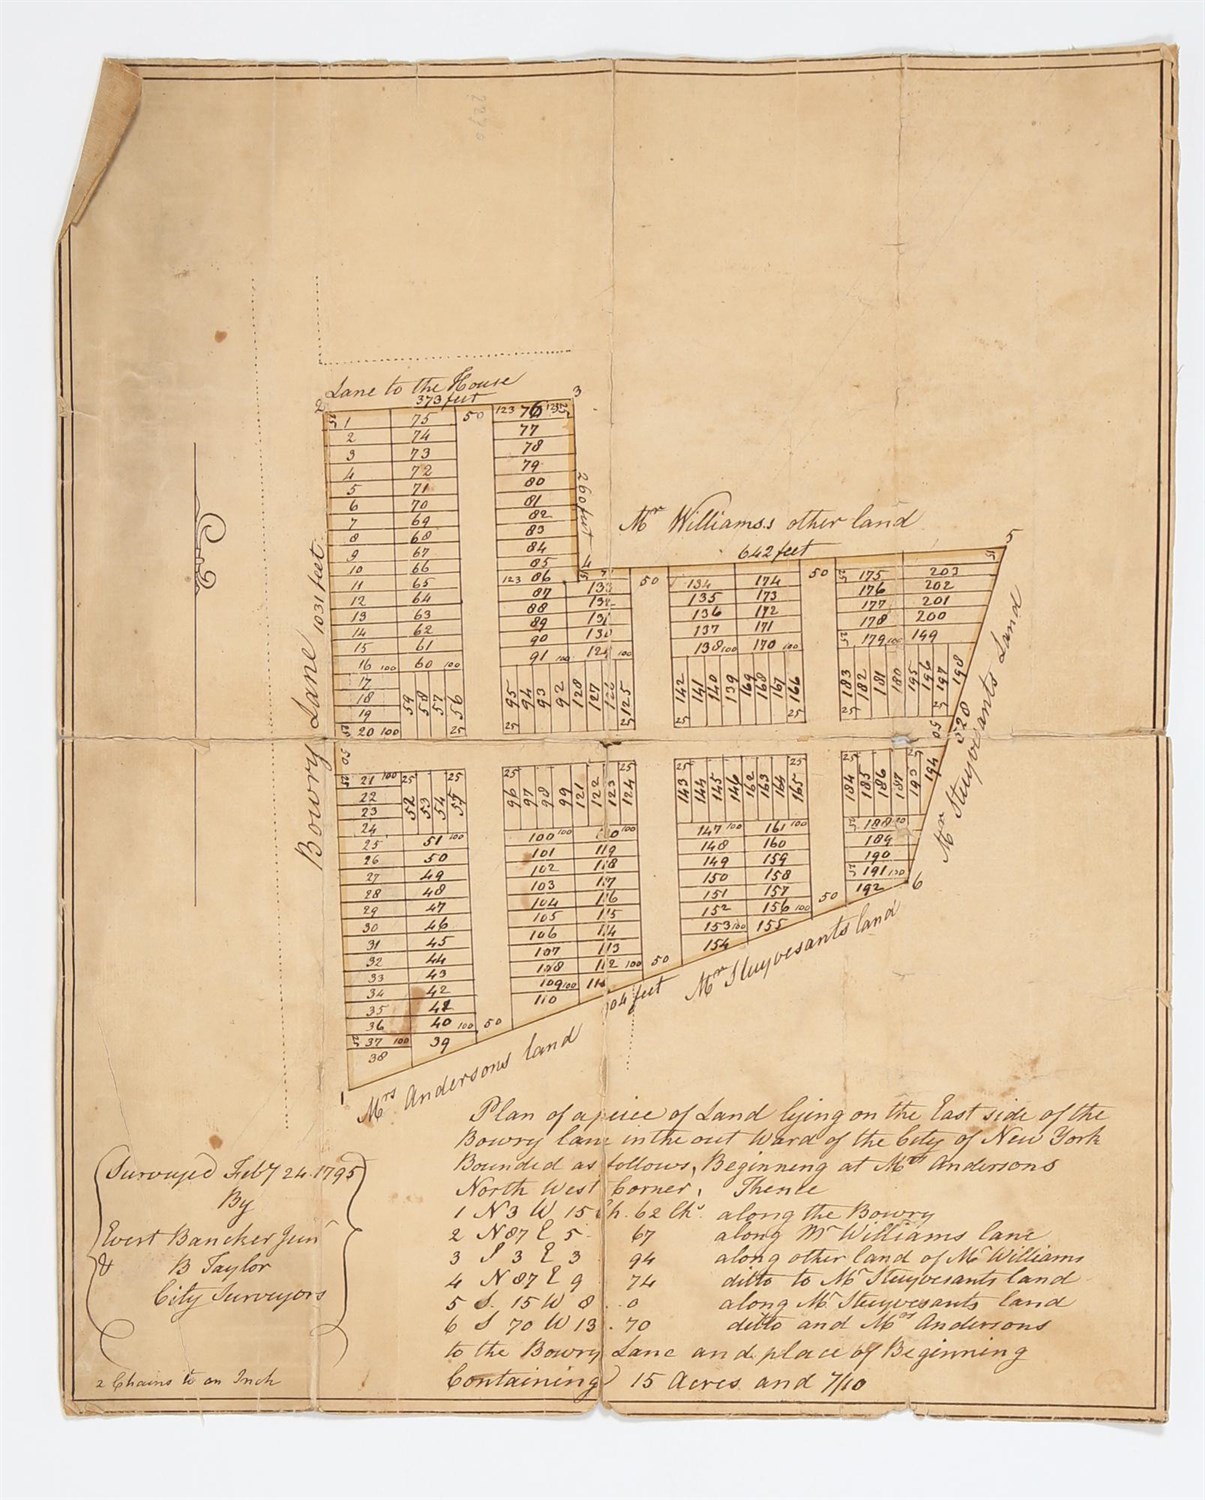 Lane to the House
373 feet
2
3
1 75 50 123 76
2 74 77
3 73 78
4 72 79
5 71 80
6 70 81
7 69 82
8 68 83
9 67 84
10 66 85
11 65 123 86
12 64 87 133
13 63 88
14 62 89
15 61 90 130
16 100 60 100 91 100 100
17
18
19
20 100
59 58 57 56
25
95 94 93 92 128 127 126 125
25
260 feet
4
Mr Williams's other land
642 feet
5
50 134 174 50 175 203
135 173 176 202
136 172 177 201
137 171 178 200
138 100 170 100 179 100 199
142 141 140 139 169 168 167 166
25 25
183 182 181 180 195 196 197 198
25
Bowry Lane 1031 feet
50
50
520
Mr Stuyvesants Land
21 100
22
23
24
25 52 53 54 55 25
25 96 97 98 99 121 122 123 124 25
25 143 144 145 146 162 163 164 165 25
25 184 185 186 187 193 194
25 51 100
26 50
27 49
28 48
29 47
30 46
31 45
32 44
33 43
34 42
35
36 40 100 50
37 100 39
38
100 100 120 100
101 119
102 118
103 117
104 116
105 115
106 114
107 113
108 112 100 50
109 100 111
110
147 100 161 100
148 160
149 159
150 158
151 157
152 156 100 50
153 100 155
154
188
189
190
191
192
6
1
Mrs Andersons land
04 feet
Mr Stuyvesants land
Plan of a piece of Land lying on the East side of the
Bowry lane in the out Ward of the City of New York
Bounded as follows, Beginning at Mrs Andersons
North West Corner, Thence
1 N 3 W 15 Ch. 62 Lks along the Bowry
2 N 87 E 5 67 along Mr Williams lane
3 S 3 E 3 94 along other land of Mr Williams
4 N 87 E 9 74 ditto to Mr Stuyvesants land
5 S. 15 W 8 . 0 along Mr Stuyvesants land
6 S 70 W 13 . 70 ditto and Mrs Andersons
to the Bowry Lane and place of Beginning
Containing 15 Acres and 7/10
Surveyed Feby 24. 1795
By
Evert Bancker Jun
& B Taylor
City Surveyors
2 Chains to an Inch